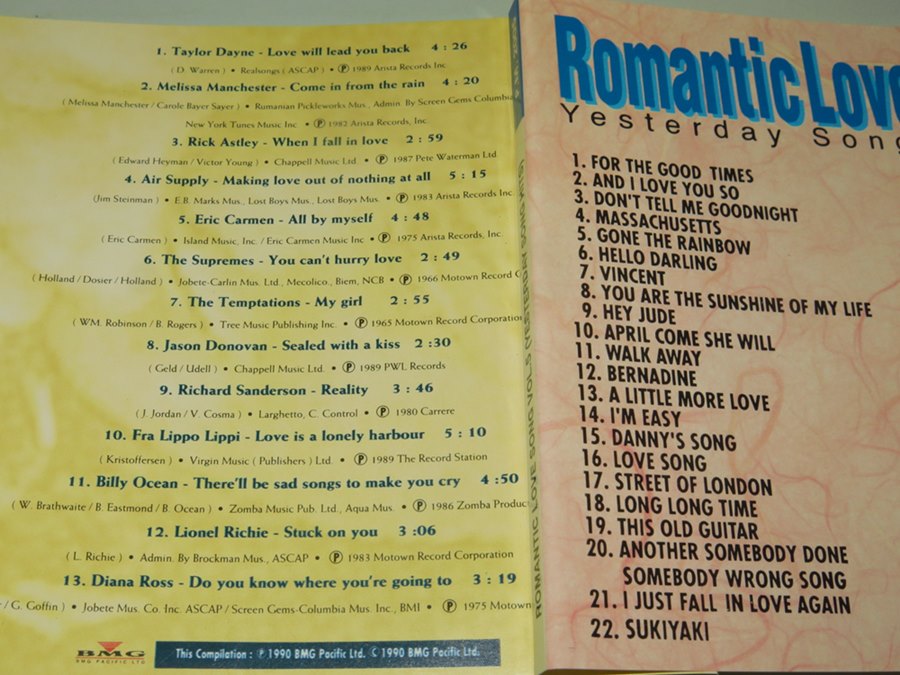 1. Taylor Dayne - Love will lead you back 4 : 26
( D. Warren ) • Realsongs ( ASCAP ) • ℗ 1989 Arista Records Inc
2. Melissa Manchester - Come in from the rain 4 : 20
( Melissa Manchester / Carole Bayer Sayer ) • Rumanian Pickleworks Mus., Admin. By Screen Gems Columbia
New York Tunes Music Inc • ℗ 1982 Arista Records, Inc
3. Rick Astley - When I fall in love 2 : 59
( Edward Heyman / Victor Young ) • Chappell Music Ltd • ℗ 1987 Pete Waterman Ltd
4. Air Supply - Making love out of nothing at all 5 : 15
(Jim Steinman ) • E.B. Marks Mus., Lost Boys Mus., Lost Boys Mus. • ℗ 1983 Arista Records Inc.
5. Eric Carmen - All by myself 4 : 48
( Eric Carmen ) • Island Music, Inc. / Eric Carmen Music Inc • ℗ 1975 Arista Records, Inc.
6. The Supremes - You can't hurry love 2 : 49
( Holland / Dosier / Holland ) • Jobete-Carlin Mus. Ltd., Mecolico., Biem, NCB • ℗ 1966 Motown Record
7. The Temptations - My girl 2 : 55
( WM. Robinson / B. Rogers ) • Tree Music Publishing Inc. • ℗ 1965 Motown Record Corporation
8. Jason Donovan - Sealed with a kiss 2 :30
( Geld / Udell ) • Chappell Music Ltd. • ℗ 1989 PWL Records
9. Richard Sanderson - Reality 3 : 46
( J. Jordan / V. Cosma ) • Larghetto, C. Control • ℗ 1980 Carrere
10. Fra Lippo Lippi - Love is a lonely harbour 5 : 10
( Kristoffersen ) • Virgin Music ( Publishers ) Ltd. • ℗ 1989 The Record Station
11. Billy Ocean - There'll be sad songs to make you cry 4 :50
( W. Brathwaite / B. Eastmond / B. Ocean ) • Zomba Music Pub. Ltd., Aqua Mus. • ℗ 1986 Zomba Produc
12. Lionel Richie - Stuck on you 3 :06
( L. Richie ) • Admin. By Brockman Mus., ASCAP • ℗ 1983 Motown Record Corporation
13. Diana Ross - Do you know where you're going to 3 : 19
/ G. Goffin ) • Jobete Mus. Co. Inc. ASCAP / Screen Gems-Columbia Mus. Inc., BMI • ℗ 1975 Motown
BMG
BMG PACIFIC LTD
This Compilation : ℗ 1990 BMG Pacific Ltd. © 1990 BMG Pacific Ltd.
ROMANTIC LOVE SONG VOL.5 (YESTERDAY SONG HITS)
Romantic Love
Yesterday Song
1. FOR THE GOOD TIMES
2. AND I LOVE YOU SO
3. DON'T TELL ME GOODNIGHT
4. MASSACHUSETTS
5. GONE THE RAINBOW
6. HELLO DARLING
7. VINCENT
8. YOU ARE THE SUNSHINE OF MY LIFE
9. HEY JUDE
10. APRIL COME SHE WILL
11. WALK AWAY
12. BERNADINE
13. A LITTLE MORE LOVE
14. I'M EASY
15. DANNY'S SONG
16. LOVE SONG
17. STREET OF LONDON
18. LONG LONG TIME
19. THIS OLD GUITAR
20. ANOTHER SOMEBODY DONE
SOMEBODY WRONG SONG
21. I JUST FALL IN LOVE AGAIN
22. SUKIYAKI